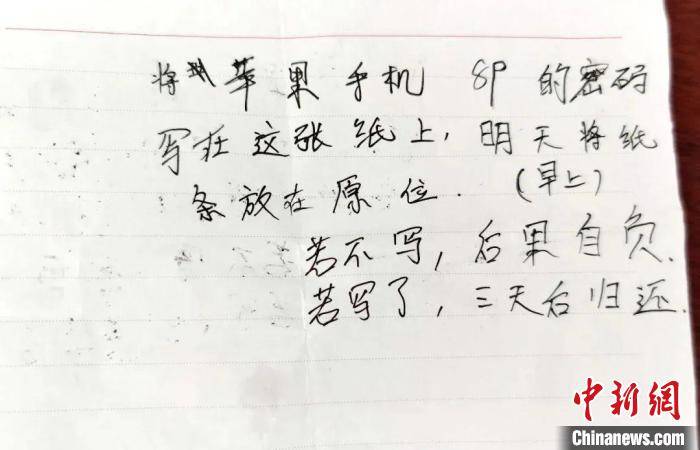 将苹果手机 8P 的密码
写在这张纸上，明天将纸
条放在原位. (早上)
若不写，后果自负.
若写了，三天后归还.
中新網
Chinanews.com